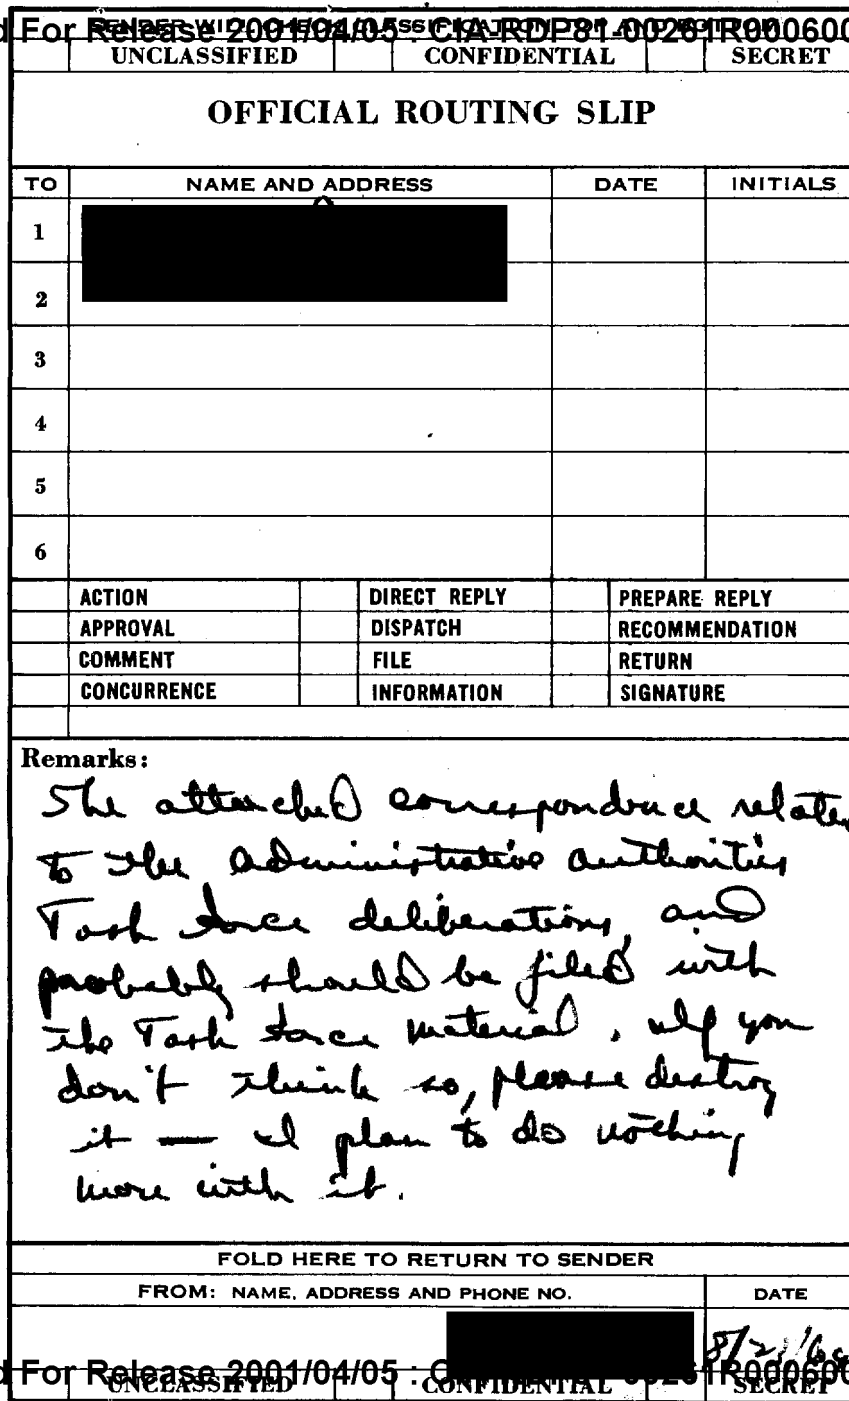 SENDER WILL CHECK CLASSIFICATION TOP AND BOTTOM
d For Release 2001/04/05 : CIA-RDP81-00261R000600
UNCLASSIFIED CONFIDENTIAL SECRET
OFFICIAL ROUTING SLIP
TO NAME AND ADDRESS DATE INITIALS
1
2
3
4
5
6
ACTION DIRECT REPLY PREPARE REPLY
APPROVAL DISPATCH RECOMMENDATION
COMMENT FILE RETURN
CONCURRENCE INFORMATION SIGNATURE
Remarks:
The attached correspondence relates
to the administrative authorities
Task Force deliberations, and
probably should be filed with
the Task Force material. If you
don't think so, please destroy
it — I plan to do nothing
more with it.
FOLD HERE TO RETURN TO SENDER
FROM: NAME, ADDRESS AND PHONE NO. DATE
d For Release 2001/04/05 : 1R000600
UNCLASSIFIED CONFIDENTIAL SECRET